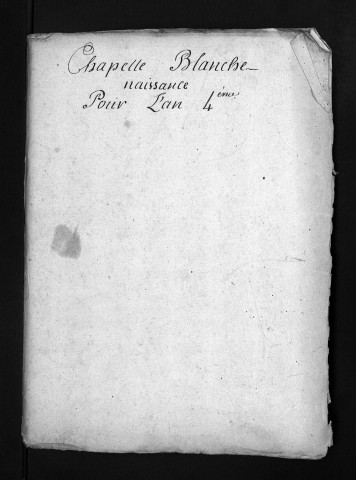 Chapelle Blanche
naissance
Pour L'an 4ème